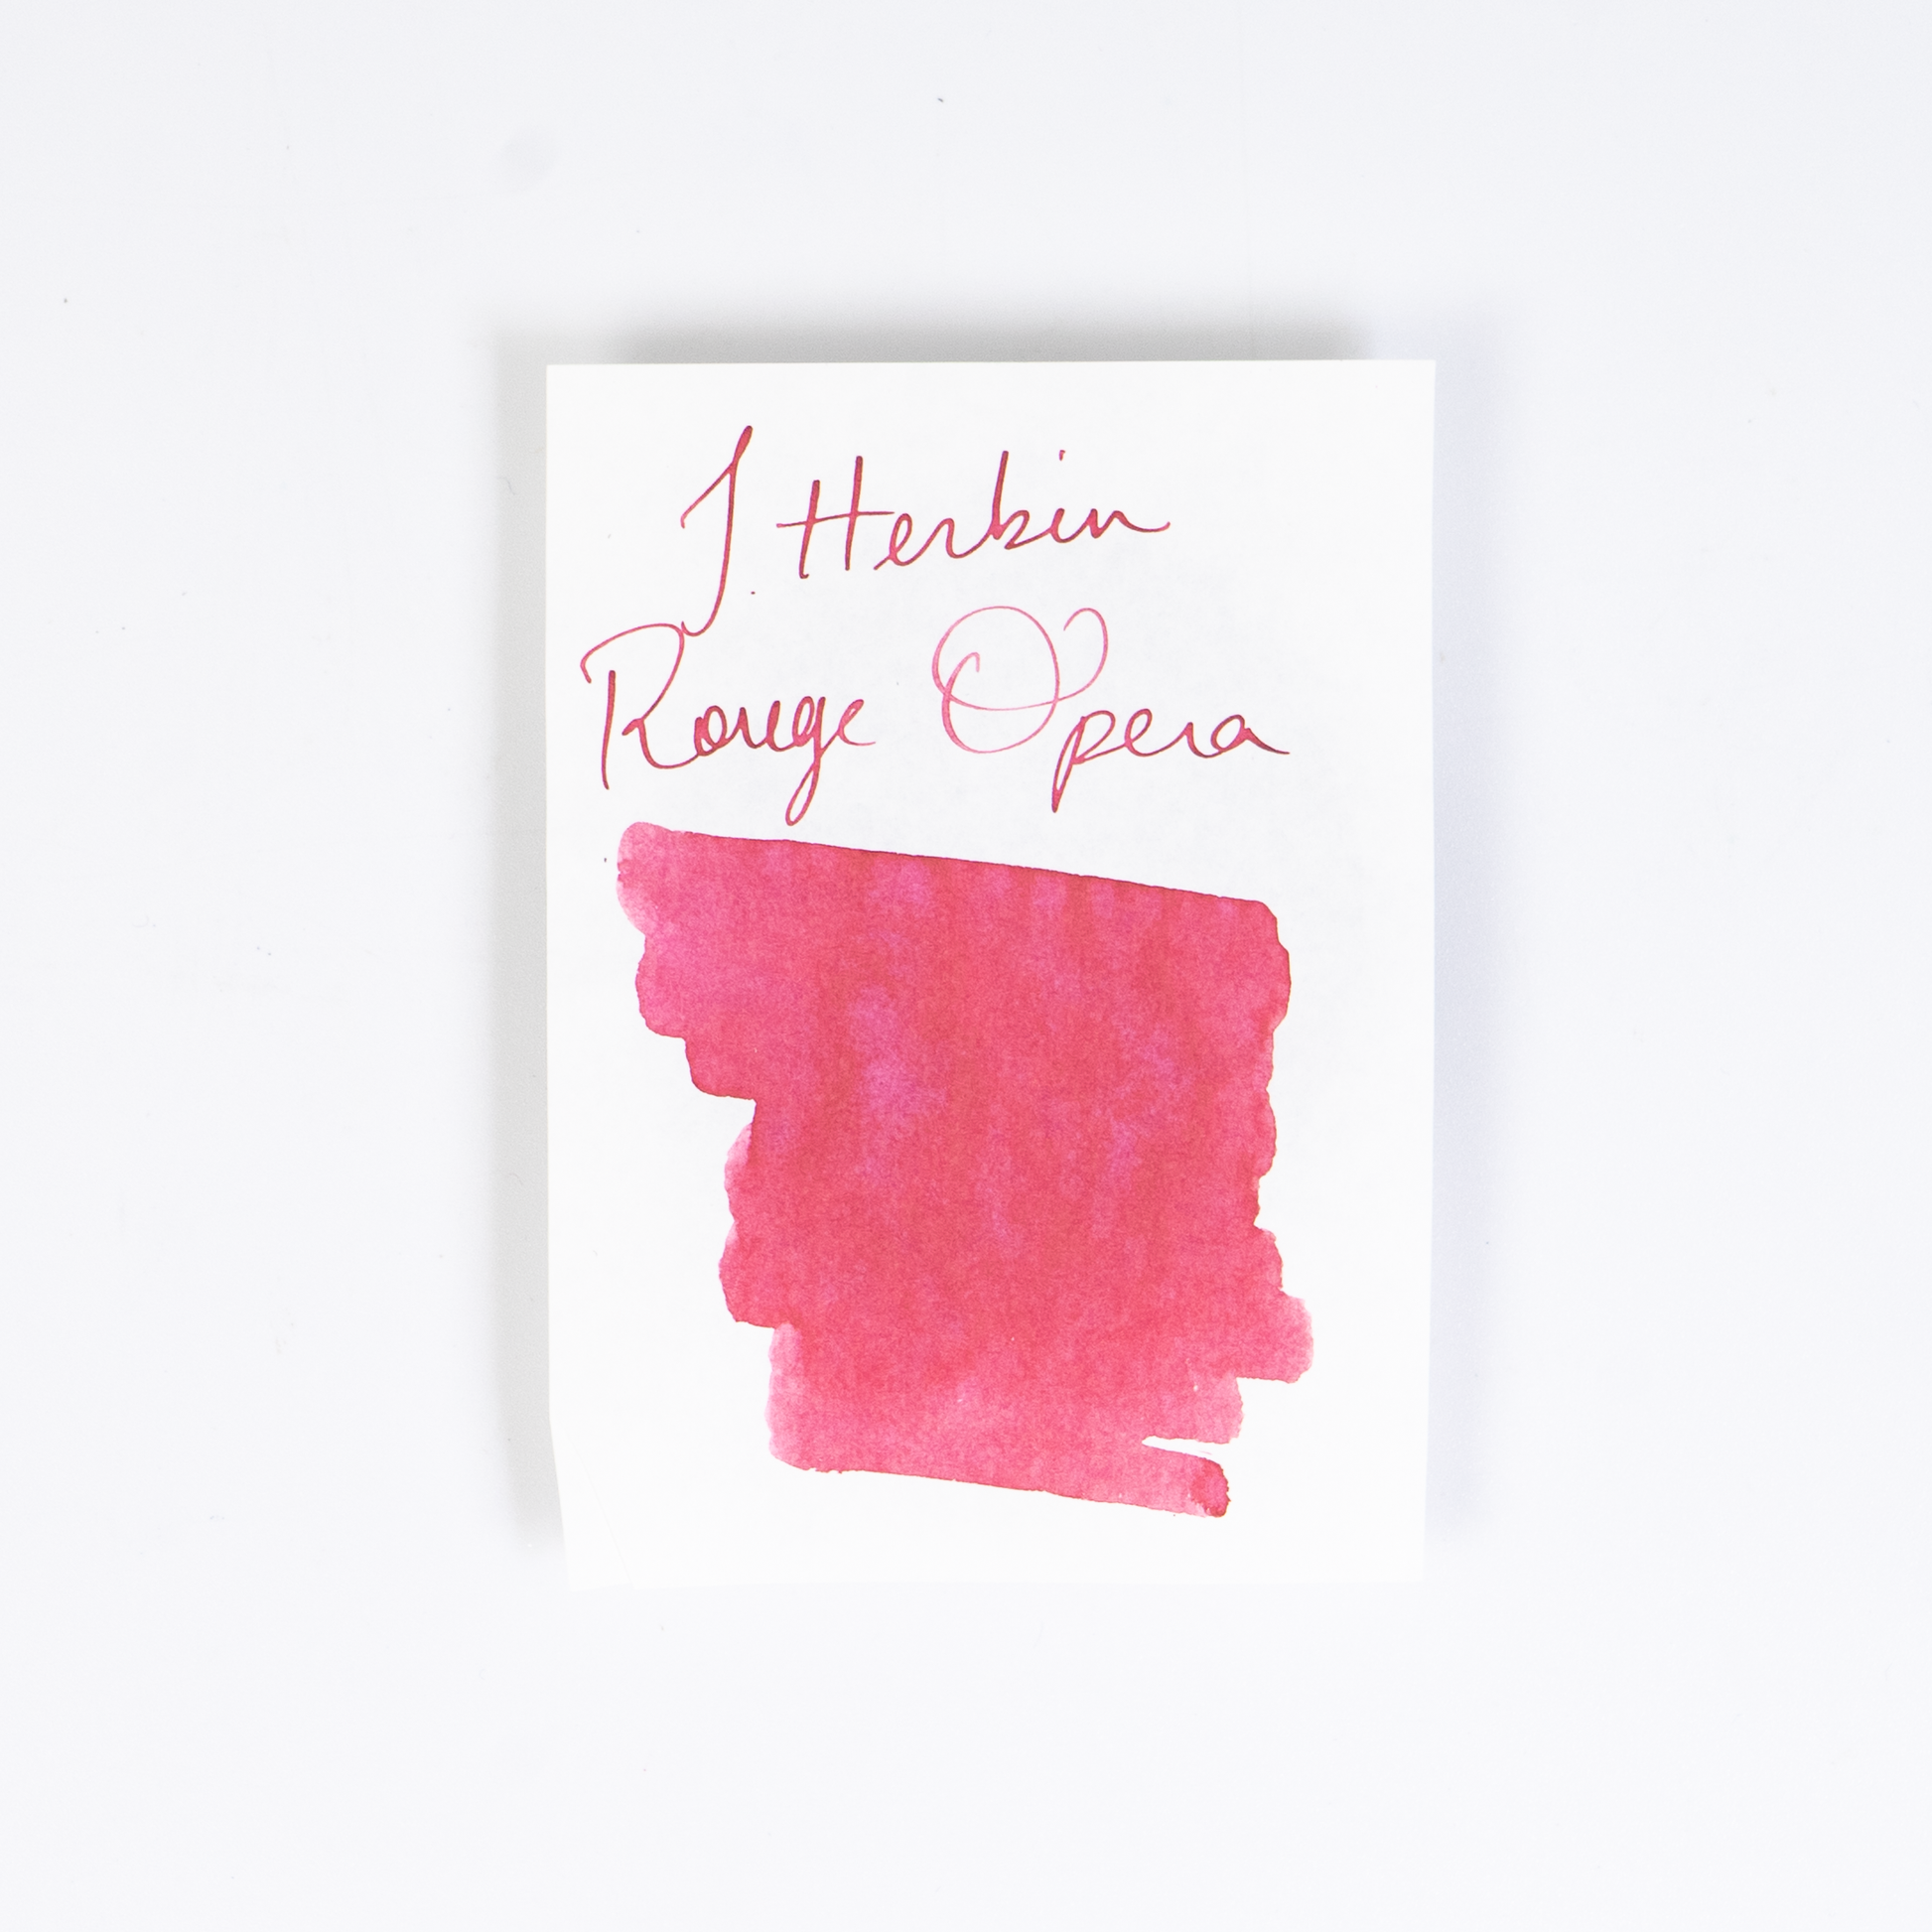 J. Herbin
Rouge Opera